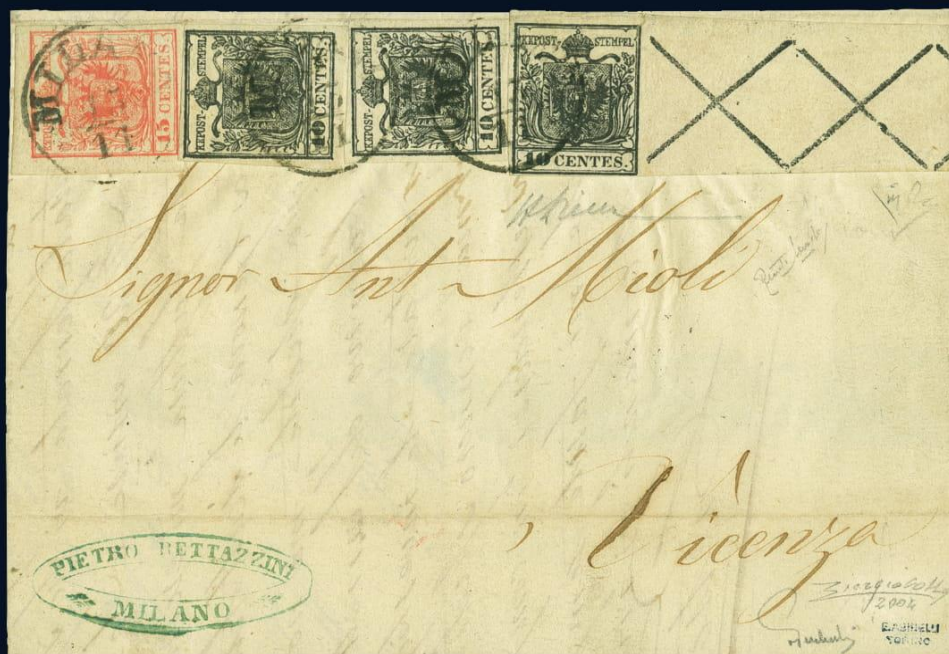 MILA
11
15 CENTES.
KKPOST- STEMPEL
10 CENTES.
KKPOST- STEMPEL
10 CENTES.
KKPOST- STEMPEL
10 CENTES.
Signor Ant Mioli
Vicenza
PIETRO BETTAZZINI
MILANO
2004
TORINO